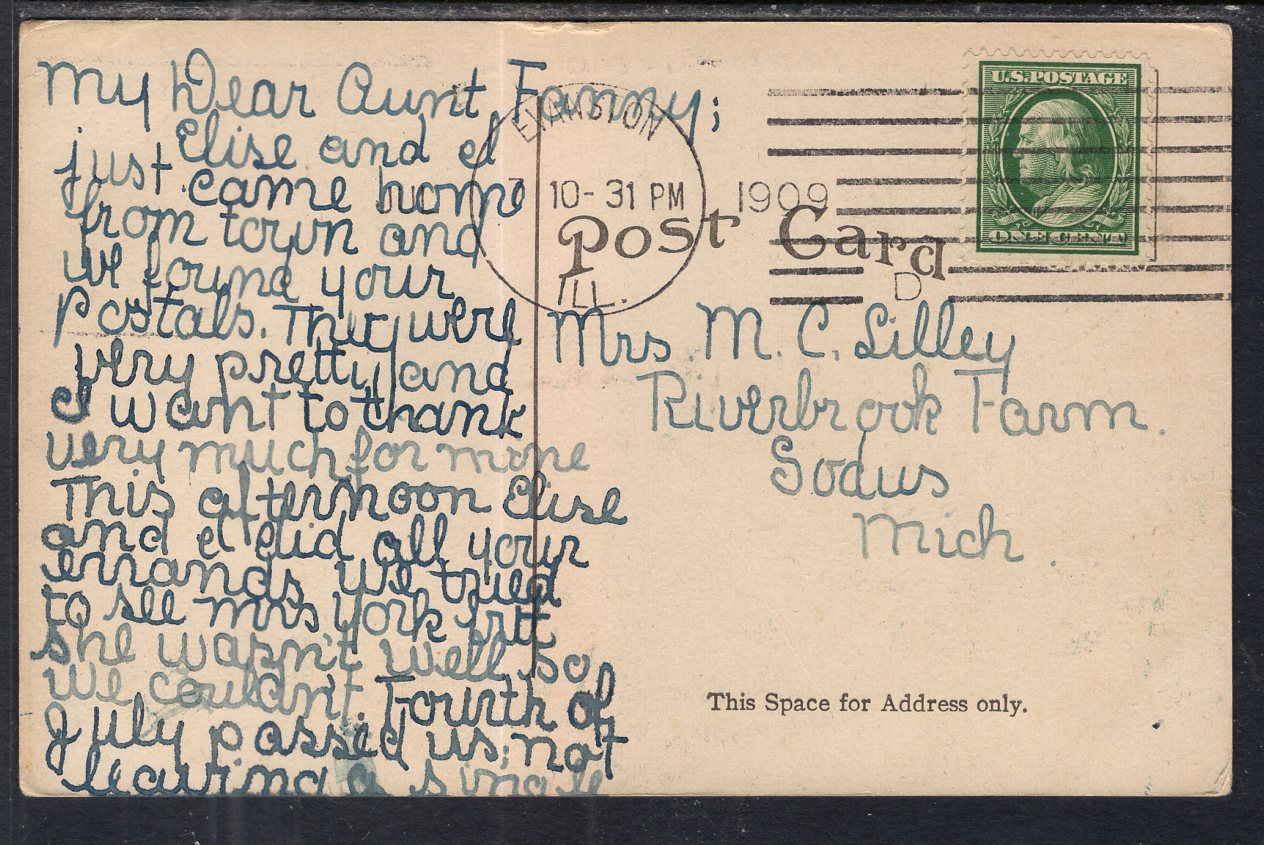 My Dear Aunt Fanny;
Elise and I
just came home
from town and
we found your
postals. They were
very pretty and
I want to thank
very much for mine
This afternoon Elise
and I did all your
errands, we tried
to see Mrs York but
she wasn't well so
we couldn't. Fourth of
July passed us; not
leaving a single
EVANSTON
10-31 PM
ILL.
1909
D
U.S. POSTAGE
ONE CENT
Post Card
Mrs. M. C. Lilley
Riverbrook Farm.
Sodus
Mich.
This Space for Address only.